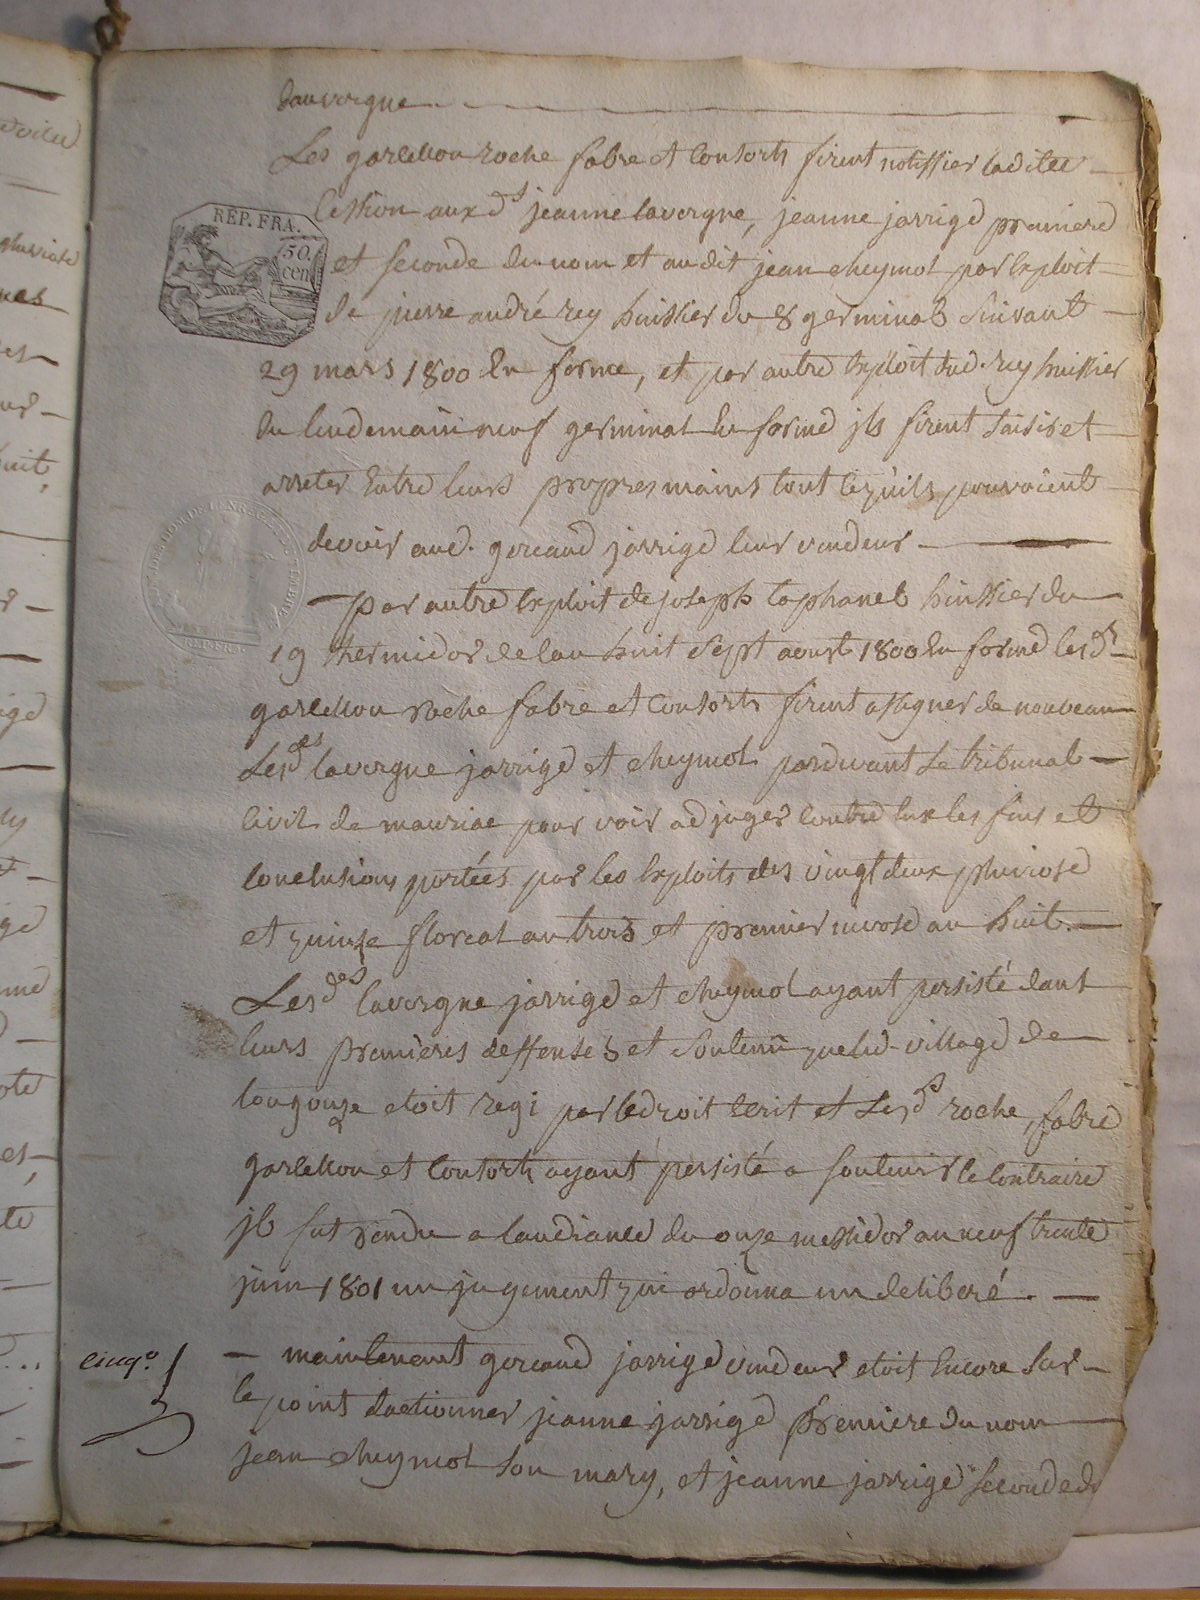 dauvergne
Les garcelloux roche fabre et consorts firent notiffier ladite
cession aux ds jeanne lavergne, jeanne jarrige premiere
REP. FRA.
50.
cen
et seconde du nom et audit jean cheymol par exploit
de pierre andré rey huissier du 8 germinal suivant
29 mars 1800 en forme, et par autre exploit dud. rey huissier
du lendemain neuf germinal en forme jls firent saisir et
arreter entre leurs propres mains tout ce qu'ils pouvoient
devoir aud. geraud jarrige leur vendeur
par autre exploit de joseph taphanel huissier du
19 thermidor de lan huit sept aoust 1800 en forme lesds
REP. FRA.
roche fabre et consorts firent assigner de nouveau
Lesdes lavergne jarrige et cheymol pardevant le tribunal
civil de mauriac pour voir adjuger contre eux les fins et
conclusions portées par les exploits des vingt deux pluviose
et quinze floreal an trois et premier nivose an huit.
Lesdes lavergne jarrige et cheymol ayant persisté dans
leurs premieres deffenses et soutenu que led. village de
etoit regi par le droit ecrit et Lesds roche, fabre
et consorts ayant persisté a soutenir le contraire
jl fut rendu a laudiance du onze messidor an neuf trente
juin 1801 un jugement qui ordonna un deliberé.
cinqo.
maintenant geraud jarrige vendeur etoit encore sur
le point dactionner jeanne jarrige premiere du nom
jean cheymol son mary, et jeanne jarrige seconde du